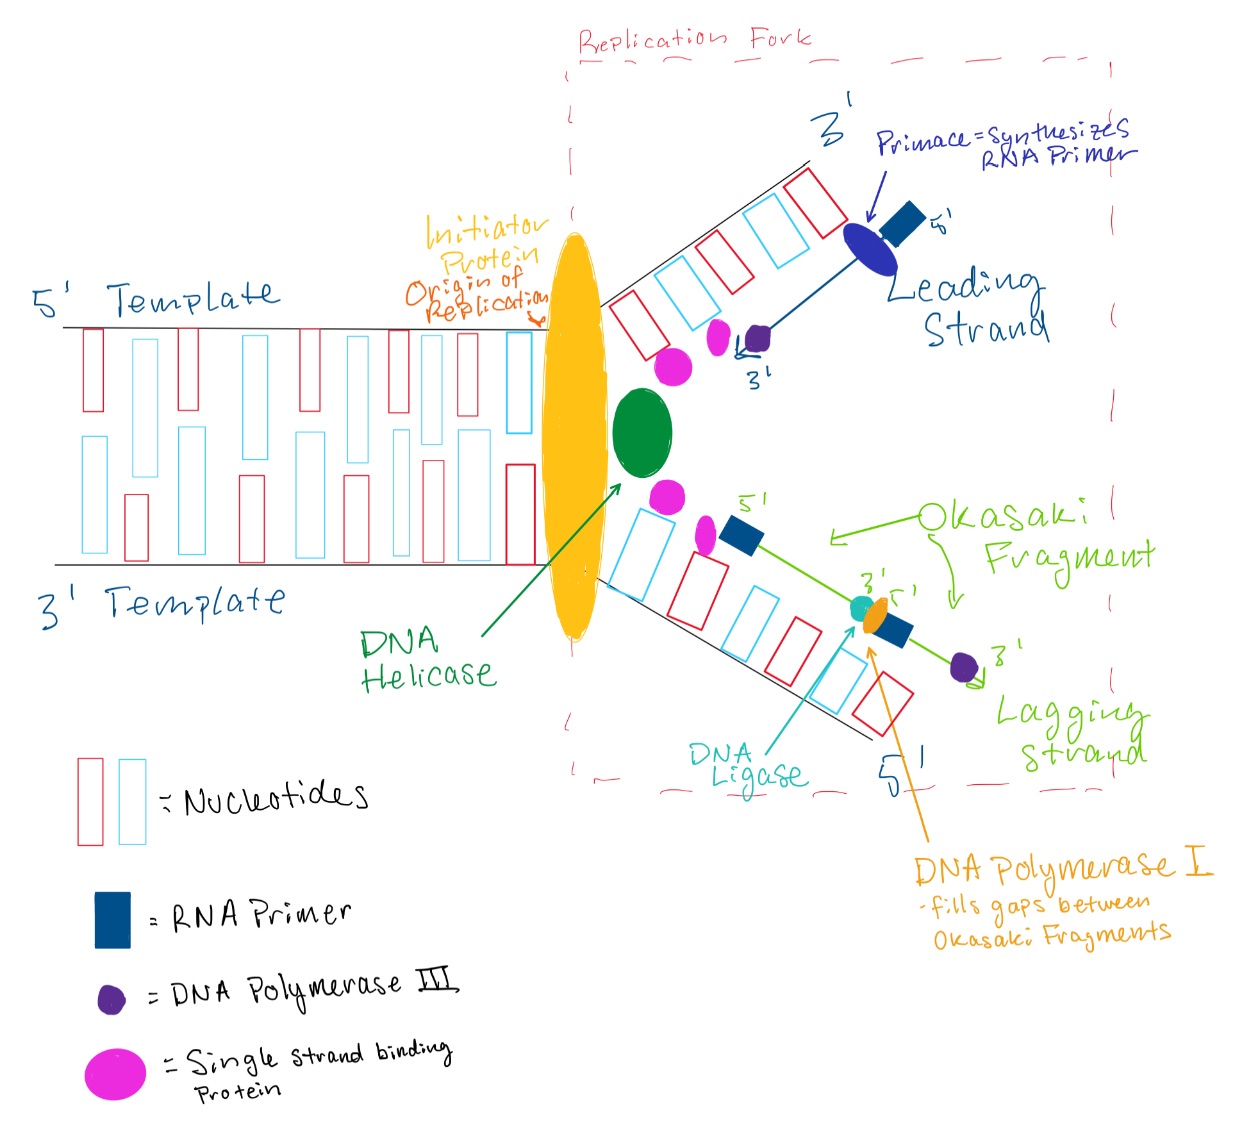 Replication Fork
3'
Primace = Synthesizes
RNA Primer
5'
Leading
Strand
3'
Initiator
Protein
Origin of
Replication
5' Template
3' Template
DNA
Helicase
5'
Okasaki
Fragment
3'
5'
3'
Lagging
Strand
DNA
Ligase
5'
DNA Polymerase I
- fills gaps between
Okasaki Fragments
= Nucleotides
= RNA Primer
= DNA Polymerase III
= Single strand binding
Protein